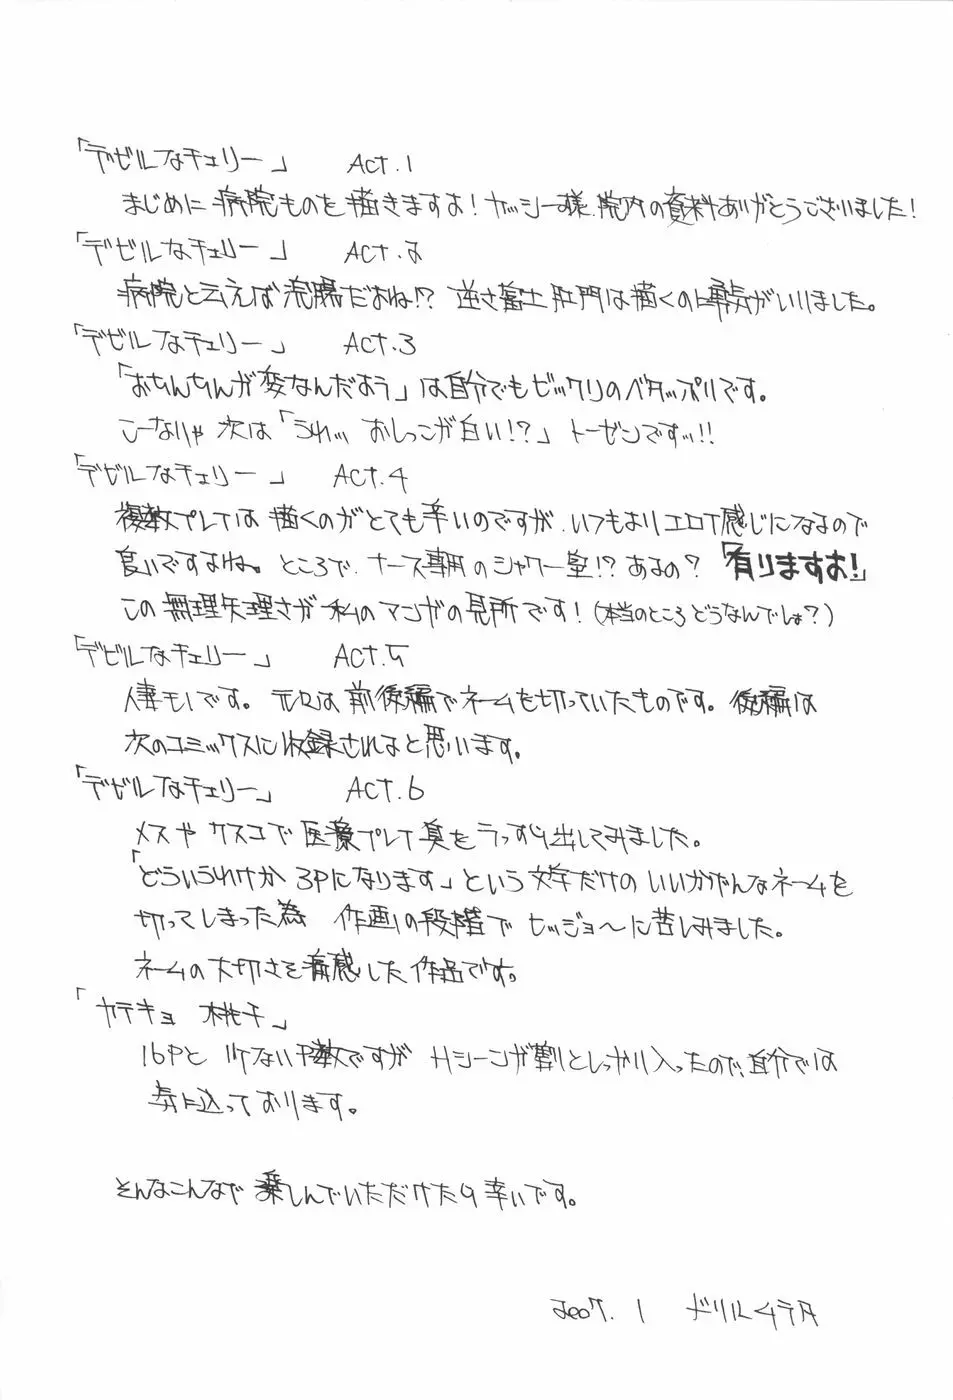 「デビルなチェリー」 Act.1
まじめに病院ものを描きますよ！ヤッシー様、院内の資料ありがとうございました！
「デビルなチェリー」 Act.2
病院と云えば浣腸だよね!? 逆さ富士肛門は描くのに勇気がいりました。
「デビルなチェリー」 Act.3
「おちんちんが変なんだよう」は自分でもビックリのベタップリです。
こーなりゃ次は「うわッ おしっこが白い!?」トーゼンですッ!!
「デビルなチェリー」 Act.4
複数プレイは描くのがとても辛いのですが、いつもよりエロイ感じになるので
良いですよね。ところで、ナース専用のシャワー室!? あるの? 「有りますよ!」
この無理矢理さが私のマンガの見所です！(本当のところどうなんでしょ？)
「デビルなチェリー」 Act.5
人妻モノです。元々は前後編でネームを切っていたものです。後編は
次のコミックスに収録されると思います。
「デビルなチェリー」 Act.6
メスやクスコで医療プレイ臭をうっすら出してみました。
「どういうわけか3Pになります」という文字だけのいいかげんなネームを
切ってしまった為 作画の段階でヒッジョ〜に苦しみました。
ネームの大切さを痛感した作品です。
「カテキョ 桃子」
16Pと少ないP数ですがHシーンが割としっかり入ったので、自分では
気に入っております。
そんなこんなで楽しんでいただけたら幸いです。
2007.1 ドリルムラタ